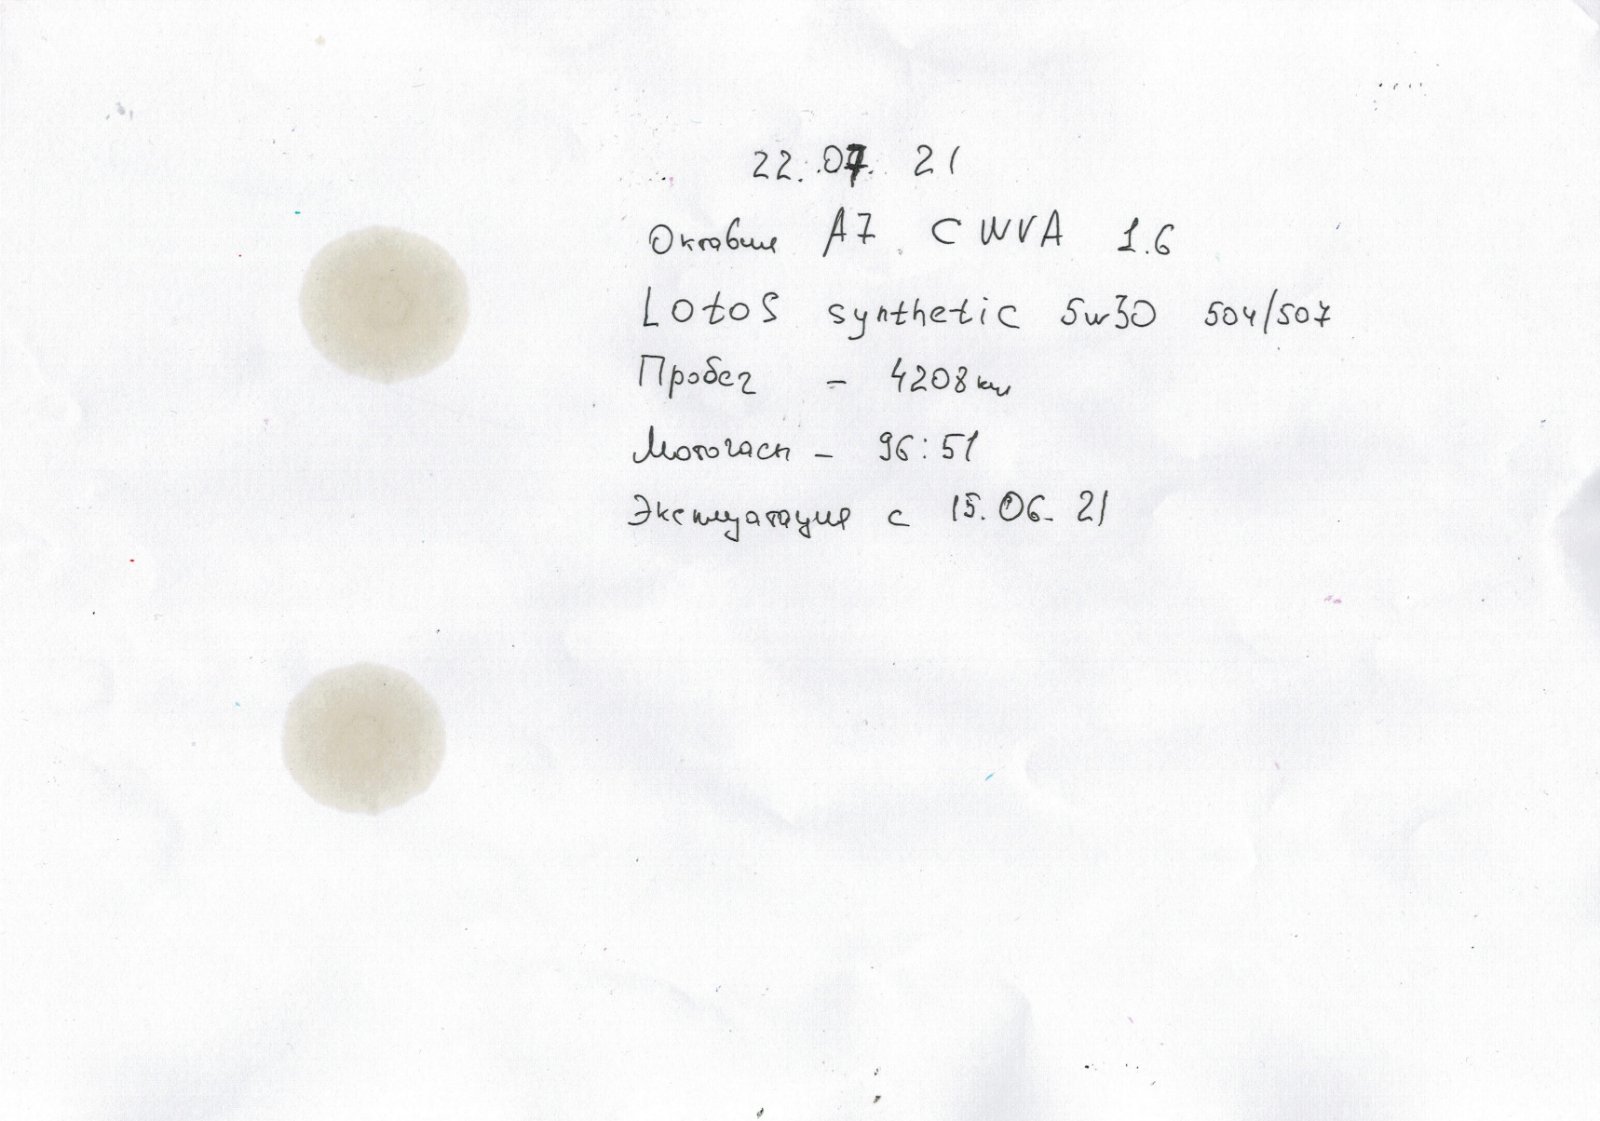 22.07.21
Октавия А7 CWVA 1.6
LotoS synthetic 5w30 504/507
Пробег - 4208км
Моточасы - 96:51
Эксплуатация с 15.06.21